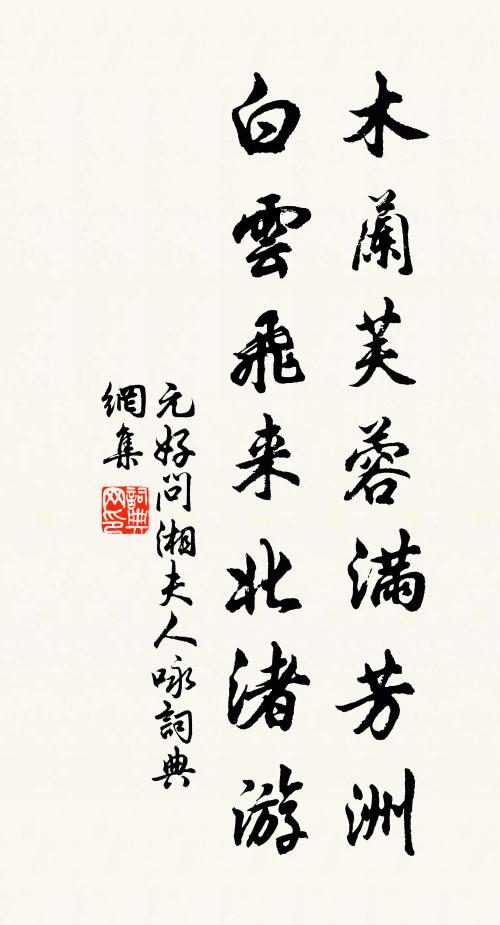 木蘭芙蓉滿芳洲
白雲飛来北渚游
元好問湘夫人咏詞典
網集
詞典
网印